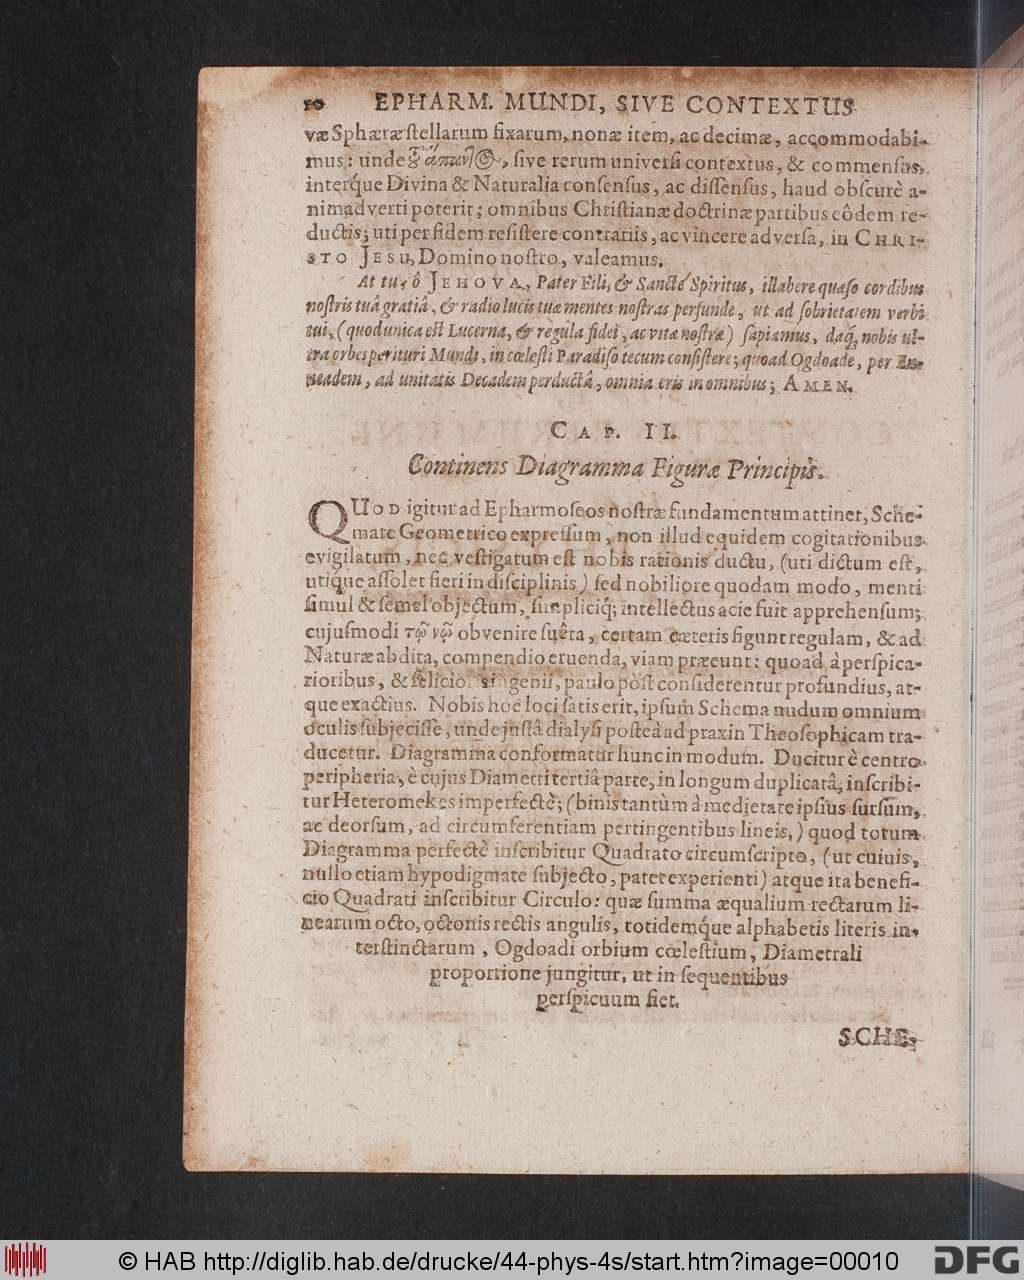 10 EPHARM. MUNDI, SIVE CONTEXTUS
væ Sphæræ ſtellarum fixarum, nonæ item, ac decimæ, accommodabi-
mus: unde ſive rerum univerſi contextus, & commenſus,
interq́ue Divina & Naturalia conſenſus, ac diſſenſus, haud obſcurè a-
nimadverti poterit; omnibus Chriſtianæ doctrinæ partibus eôdem re-
ductis; uti per fidem reſiſtere contrariis, ac vincere adverſa, in CHRI-
STO JESU, Domino noſtro, valeamus.
At tu, ô JEHOVA, Pater Fili, & Sancte Spiritus, illabere quæſo cordibus
noſtris tuâ gratiâ, & radio lucis tuæ mentes noſtras perfunde, ut ad ſobrietatem verbi
tui, (quod unica eſt Lucerna, & regula fidei, ac vitæ noſtræ) ſapiamus, daq́; nobis ul-
tra orbes perituri Mundi, in cœleſti Paradiſo tecum conſiſtere; quoad Ogdoade, per En-
neadem, ad unitatis Decadem perductâ, omnia eris in omnibus; AMEN.
CAP. II.
Continens Diagramma Figuræ Principis.
QUOD igitur ad Epharmoſeos noſtræ fundamentum attinet, Sche-
mate Geometrico expreſſum, non illud equidem cogitationibus
evigilatum, nec veſtigatum eſt nobis rationis ductu, (uti dictum eſt,
utique aſſolet fieri in diſciplinis) ſed nobiliore quodam modo, menti
ſimul & ſemel objectum, ſimpliciq́; intellectus acie fuit apprehenſum;
cujuſmodi τῷ νῷ obvenire ſuêta, certam cæteris figunt regulam, & ad
Naturæ abdita, compendio eruenda, viam præeunt: quoad à perſpica-
rioribus, & felicioris ingenii, paulo pòſt conſiderentur profundius, at-
que exactius. Nobis hoc loci ſatis erit, ipſum Schema nudum omnium
oculis ſubjeciſſe, unde juſtâ dialyſi poſteà ad praxin Theoſophicam tra-
ducetur. Diagramma conformatur hunc in modum. Ducitur è centro
peripheria, è cujus Diametri tertiâ parte, in longum duplicatâ, inſcribi-
tur Heteromekes imperfectè; (binis tantùm à medietate ipſius ſurſum,
ac deorſum, ad circumferentiam pertingentibus lineis,) quod totum
Diagramma perfectè inſcribitur Quadrato circumſcripto, (ut cuivis,
nullo etiam hypodigmate ſubjecto, patet experienti) atque ita benefi-
cio Quadrati inſcribitur Circulo: quæ ſumma æqualium rectarum li-
nearum octo, octonis rectis angulis, totidemq́ue alphabetis literis in-
terſtinctarum, Ogdoadi orbium cœleſtium, Diametrali
proportione jungitur, ut in ſequentibus
perſpicuum fiet.
SCHE-
© HAB http://diglib.hab.de/drucke/44-phys-4s/start.htm?image=00010
DFG